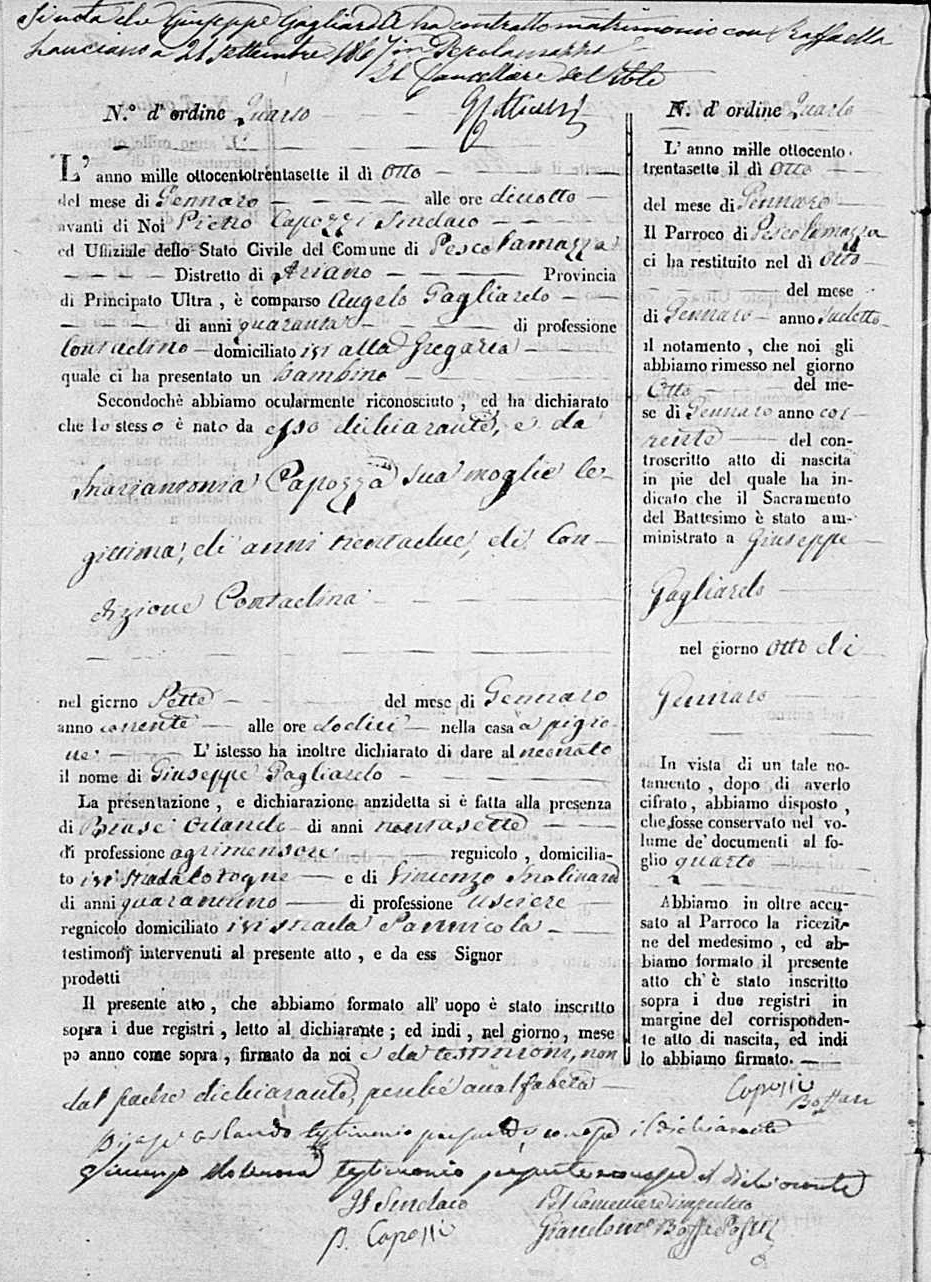 Si nota che Giuseppe Gagliardo ha contratto matrimonio con Raffaella
a 21 settembre 1867 in Pescolamazza
Il Cancelliere
N.° d' ordine Quarto
L' anno mille ottocentotrentasette il dì Otto
del mese di Gennaro alle ore diciotto
avanti di Noi Pietro Capozzi Sindaco
ed Uffiziale dello Stato Civile del Comune di Pescolamazza
Distretto di Ariano Provincia
di Principato Ultra , è comparso Angelo Gagliardo
di anni quaranta di professione
Contadino domiciliato ivi alla Gregaria
quale ci ha presentato un bambino
Secondochè abbiamo ocularmente riconosciuto , ed ha dichiarato
che lo stesso è nato da esso dichiarante, e da
Mariantonia Capozza sua moglie le-
gittima, di anni trentadue, di Con-
dizione Contadina
nel giorno Sette del mese di Gennaro
anno corrente alle ore dodici nella casa a pigio-
ne L' istesso ha inoltre dichiarato di dare al neonato
il nome di Giuseppe Gagliardo
La presentazione , e dichiarazione anzidetta si è fatta alla presenza
di Biase Orlando di anni
di professione agrimensore regnicolo , domicilia-
to ivi strada e di Vincenzo Molinara
di anni quarantuno di professione Usciere
regnicolo domiciliato ivi strada Pannicola
testimonj intervenuti al presente atto , e da ess Signor
prodotti
Il presente atto , che abbiamo formato all' uopo è stato inscritto
sopra i due registri , letto al dichiarante ; ed indi , nel giorno, mese
ed anno come sopra , firmato da noi e da testimoni, non
dal padre dichiarante, perché analfabeta
Biase orlando testimonio il dichiarante
Vincenzo Molinara testimonio il dichiarante
Il Sindaco
P. Capozzi
N. d' ordine Quarto
L' anno mille ottocento
trentasette il dì Otto
del mese di Gennaro
Il Parroco di Pescolamazza
ci ha restituito nel dì Otto
del mese
di Gennaro anno sudetto
il notamento , che noi gli
abbiamo rimesso nel giorno
Otto del me-
se di Gennaro anno cor-
rente del con-
troscritto atto di nascita
in pie del quale ha in-
dicato che il Sacramento
del Battesimo è stato am-
ministrato a Giuseppe
Gagliardo
nel giorno otto di
Gennaro
In vista di un tale no-
tamento , dopo di averlo
cifrato , abbiamo disposto ,
che fosse conservato nel vo-
lume de' documenti al fo-
glio quarto
Abbiamo in oltre accu-
sato al Parroco la ricezio-
ne del medesimo , ed ab-
biamo formato il presente
atto ch' è stato inscritto
sopra i due registri in
margine del corrisponden-
te atto di nascita, ed indi
lo abbiamo firmato.
Capozzi